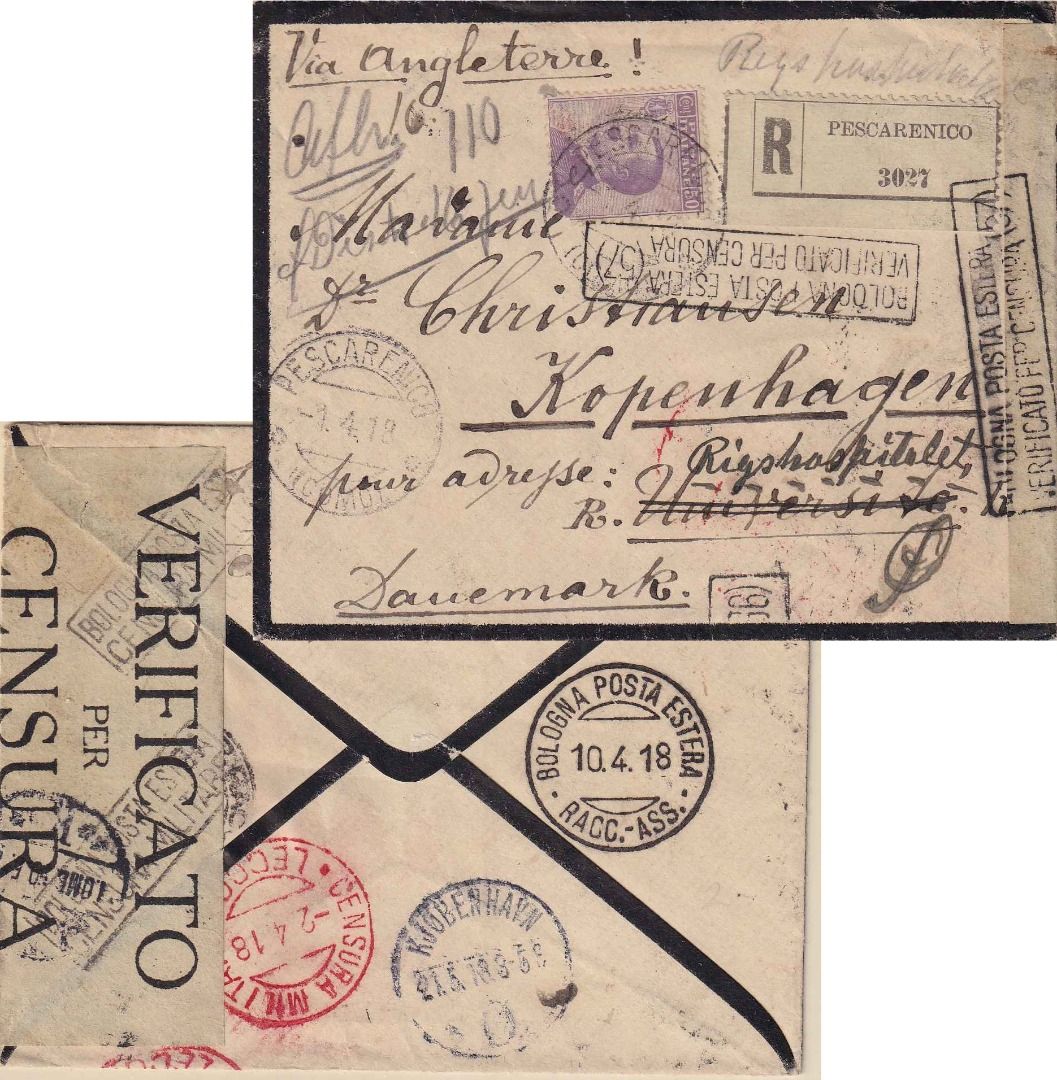 Via Angleterre!
Rigshospitalet
R
PESCARENICO
3027
110
Madame
BOLOGNA POSTA ESTERA (57)
VERIFICATO PER CENSURA
BOLOGNA POSTA ESTERA (57)
VERIFICATO PER CENSURA (57)
Dr Christiansen
PESCARENICO
-1.4.18
Kopenhagen
pour adresse: Rigshospitalet,
R. Université.
Danemark.
VERIFICATO
PER
CENSURA
BOLOGNA POSTA ESTERA
10.4.18
RACC.-ASS.
CENSURA MILITARE
LECCO
-2.4.18
KJØBENHAVN